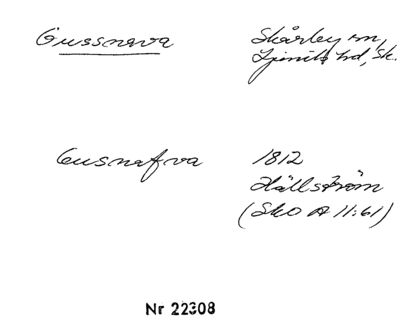 Gussnava
Skårby sn,
Ljunits hd, Sk.
Gusnafva
1812
Hällström
(SkO A 11:61)
Nr 22308